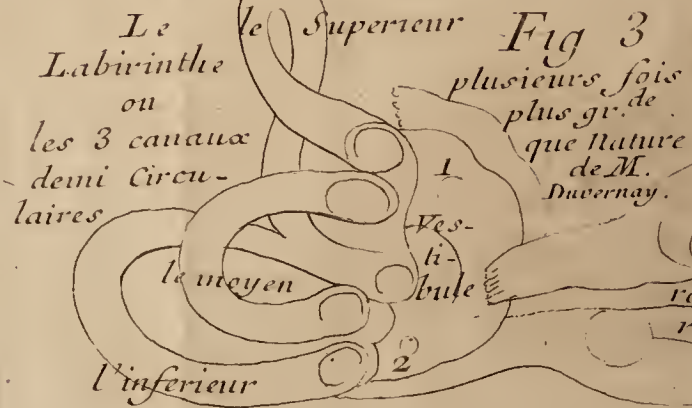 Le
Labirinthe
ou
les 3 canaux
demi Circu-
laires
le Superieur
Fig 3
plusieurs fois
plus gr.de
que Nature
de M.
Duvernay.
1
Ves-
ti-
bule
le moyen
2
l'inferieur